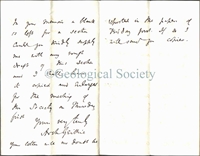 In your memoir a blank
is left for a section
Could you kindly supply
me with any rough
draft of this section
and I shall
it copied and enlarged
for the meeting of
the Society on Thursday
first
Yours very truly
Arch Geikie
Your letter will no doubt be
reported in the papers of
Friday first If so I
will send you copies.
Geological Society